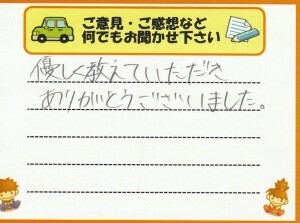 ご意見・ご感想など
何でもお聞かせ下さい
優しく教えていただき
ありがとうございました。